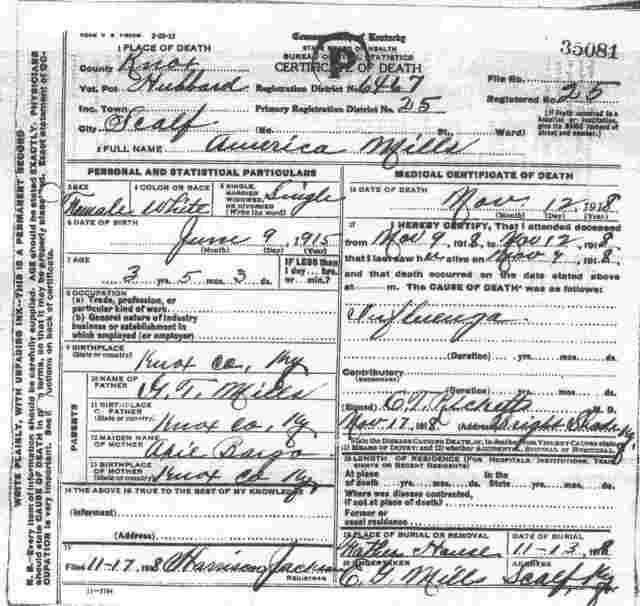 FORM V. S. 2-20-12
Commonwealth of Kentucky
STATE BOARD OF HEALTH
BUREAU OF STATISTICS
CERTIFICATE OF DEATH
35081
1 PLACE OF DEATH
County Knox
Vot. Pct. Hubbard Registration District No. 6467 File No.
Inc. Town Primary Registration District No. 25 Registered No. 25
City Scalf (No. St., Ward)
(If death occurred in a hospital or institution, give its NAME instead of street and number.)
2 FULL NAME America Mills
PERSONAL AND STATISTICAL PARTICULARS
3 SEX Female
4 COLOR OR RACE White
5 SINGLE, MARRIED, WIDOWED, OR DIVORCED (Write the word) Single
6 DATE OF BIRTH June 9 1915
(Month) (Day) (Year)
7 AGE 3 yrs. 5 mos. 3 ds.
IF LESS than 1 day... hrs. or... min.?
8 OCCUPATION
(a) Trade, profession, or
particular kind of work
(b) General nature of industry
business or establishment in
which employed (or employer)
9 BIRTHPLACE
(State or country) Knox Co, Ky
PARENTS
10 NAME OF FATHER G. T. Mills
11 BIRTHPLACE OF FATHER
(State or country) Knox Co, Ky
12 MAIDEN NAME OF MOTHER Bargo
13 BIRTHPLACE OF MOTHER
(State or country) Knox Co Ky
14 THE ABOVE IS TRUE TO THE BEST OF MY KNOWLEDGE
(Informant)
(Address)
Filed 11-17, 1918 Harrison Jackson
REGISTRAR
11-3184
MEDICAL CERTIFICATE OF DEATH
16 DATE OF DEATH Nov 12 1918
(Month) (Day) (Year)
17 I HEREBY CERTIFY, That I attended deceased
from Nov 9, 1918, to Nov 12, 1918,
that I last saw her alive on Nov 9, 1918,
and that death occurred on the date stated above
at m. The CAUSE OF DEATH* was as follows:
Influenza
(Duration) yrs. mos. ds.
Contributory
(SECONDARY)
(Duration) yrs. mos. ds.
(Signed) M. D.
Nov 17, 1918 (Address) Bright Shade Ky
18 LENGTH OF RESIDENCE (FOR HOSPITALS, INSTITUTIONS, TRANSIENTS OR RECENT RESIDENTS)
At place of death yrs. mos. ds. In the State yrs. mos. ds.
Where was disease contracted,
if not at place of death?
Former or
usual residence
19 PLACE OF BURIAL OR REMOVAL
DATE OF BURIAL 11-13 1918
20 UNDERTAKER E. G. Mills
ADDRESS Scalf Ky.
WRITE PLAINLY, WITH UNFADING INK—THIS IS A PERMANENT RECORD